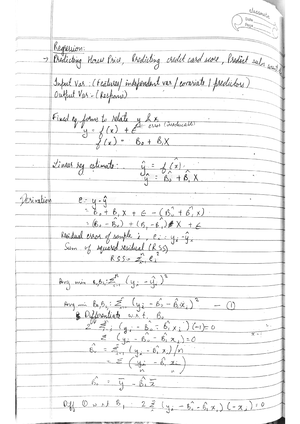 Regression:
→ Predicting House Price, Predicting credit card score, Predict sales
Input Var. (Features / independent var / covariate / predictors)
Output Var - (Response)
Fixed eq. form to relate y & x
y = f(x) + ε → error (irreducible)
f(x) = B₀ + B₁X
Linear reg estimate: ŷ = f̂(x)
ŷ = B̂₀ + B̂₁X
Derivation e = y - ŷ
= B₀ + B₁X + ε - (B̂₀ + B̂₁X)
= (B₀ - B̂₀) + (B₁ - B̂₁)X + ε
Residual error of sample i, eᵢ = yᵢ - ŷᵢ
Sum of squared residual (RSS)
RSS = Σⁿᵢ₌₁ eᵢ²
Arg min B₀B₁ Σⁿᵢ₌₁ (yᵢ - ŷᵢ)²
Arg min B₀B₁ Σⁿᵢ₌₁ (yᵢ - B̂₀ - B̂₁xᵢ)² - ①
Differentiate w.r.t. B₀
2 Σⁿᵢ₌₁ (yᵢ - B̂₀ - B̂₁xᵢ)(-1) = 0
Σ (yᵢ - B̂₀ - B̂₁xᵢ) = 0
B̂₀ = Σⁿᵢ₌₁ (yᵢ - B̂₁xᵢ)/n
= Σ (yᵢ - B̂₁xᵢ)
n n
B̂₀ = ȳ - B̂₁x̄
Diff ① w.r.t B₁ = 2 Σ (yᵢ - B̂₀ - B̂₁xᵢ)(-xᵢ) = 0